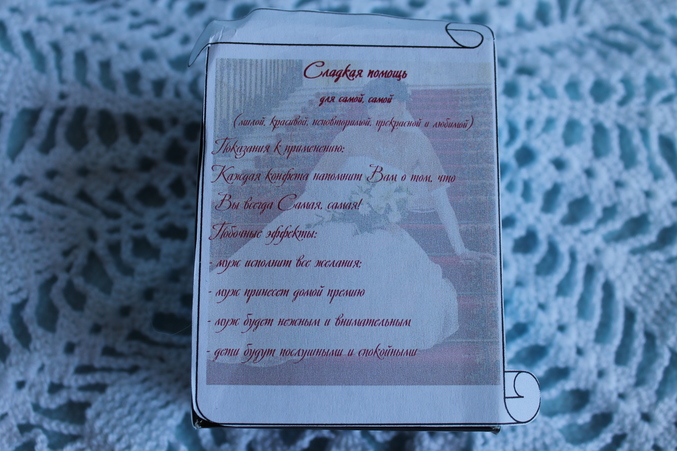 Сладкая помощь
для самой, самой
(милой, красивой, неповторимой, прекрасной и любимой)
Показания к применению:
Каждая конфета напомнит Вам о том, что
Вы всегда Самая, самая!
Побочные эффекты:
- муж исполнит все желания;
- муж принесет домой премию
- муж будет нежным и внимательным
- дети будут послушными и спокойными